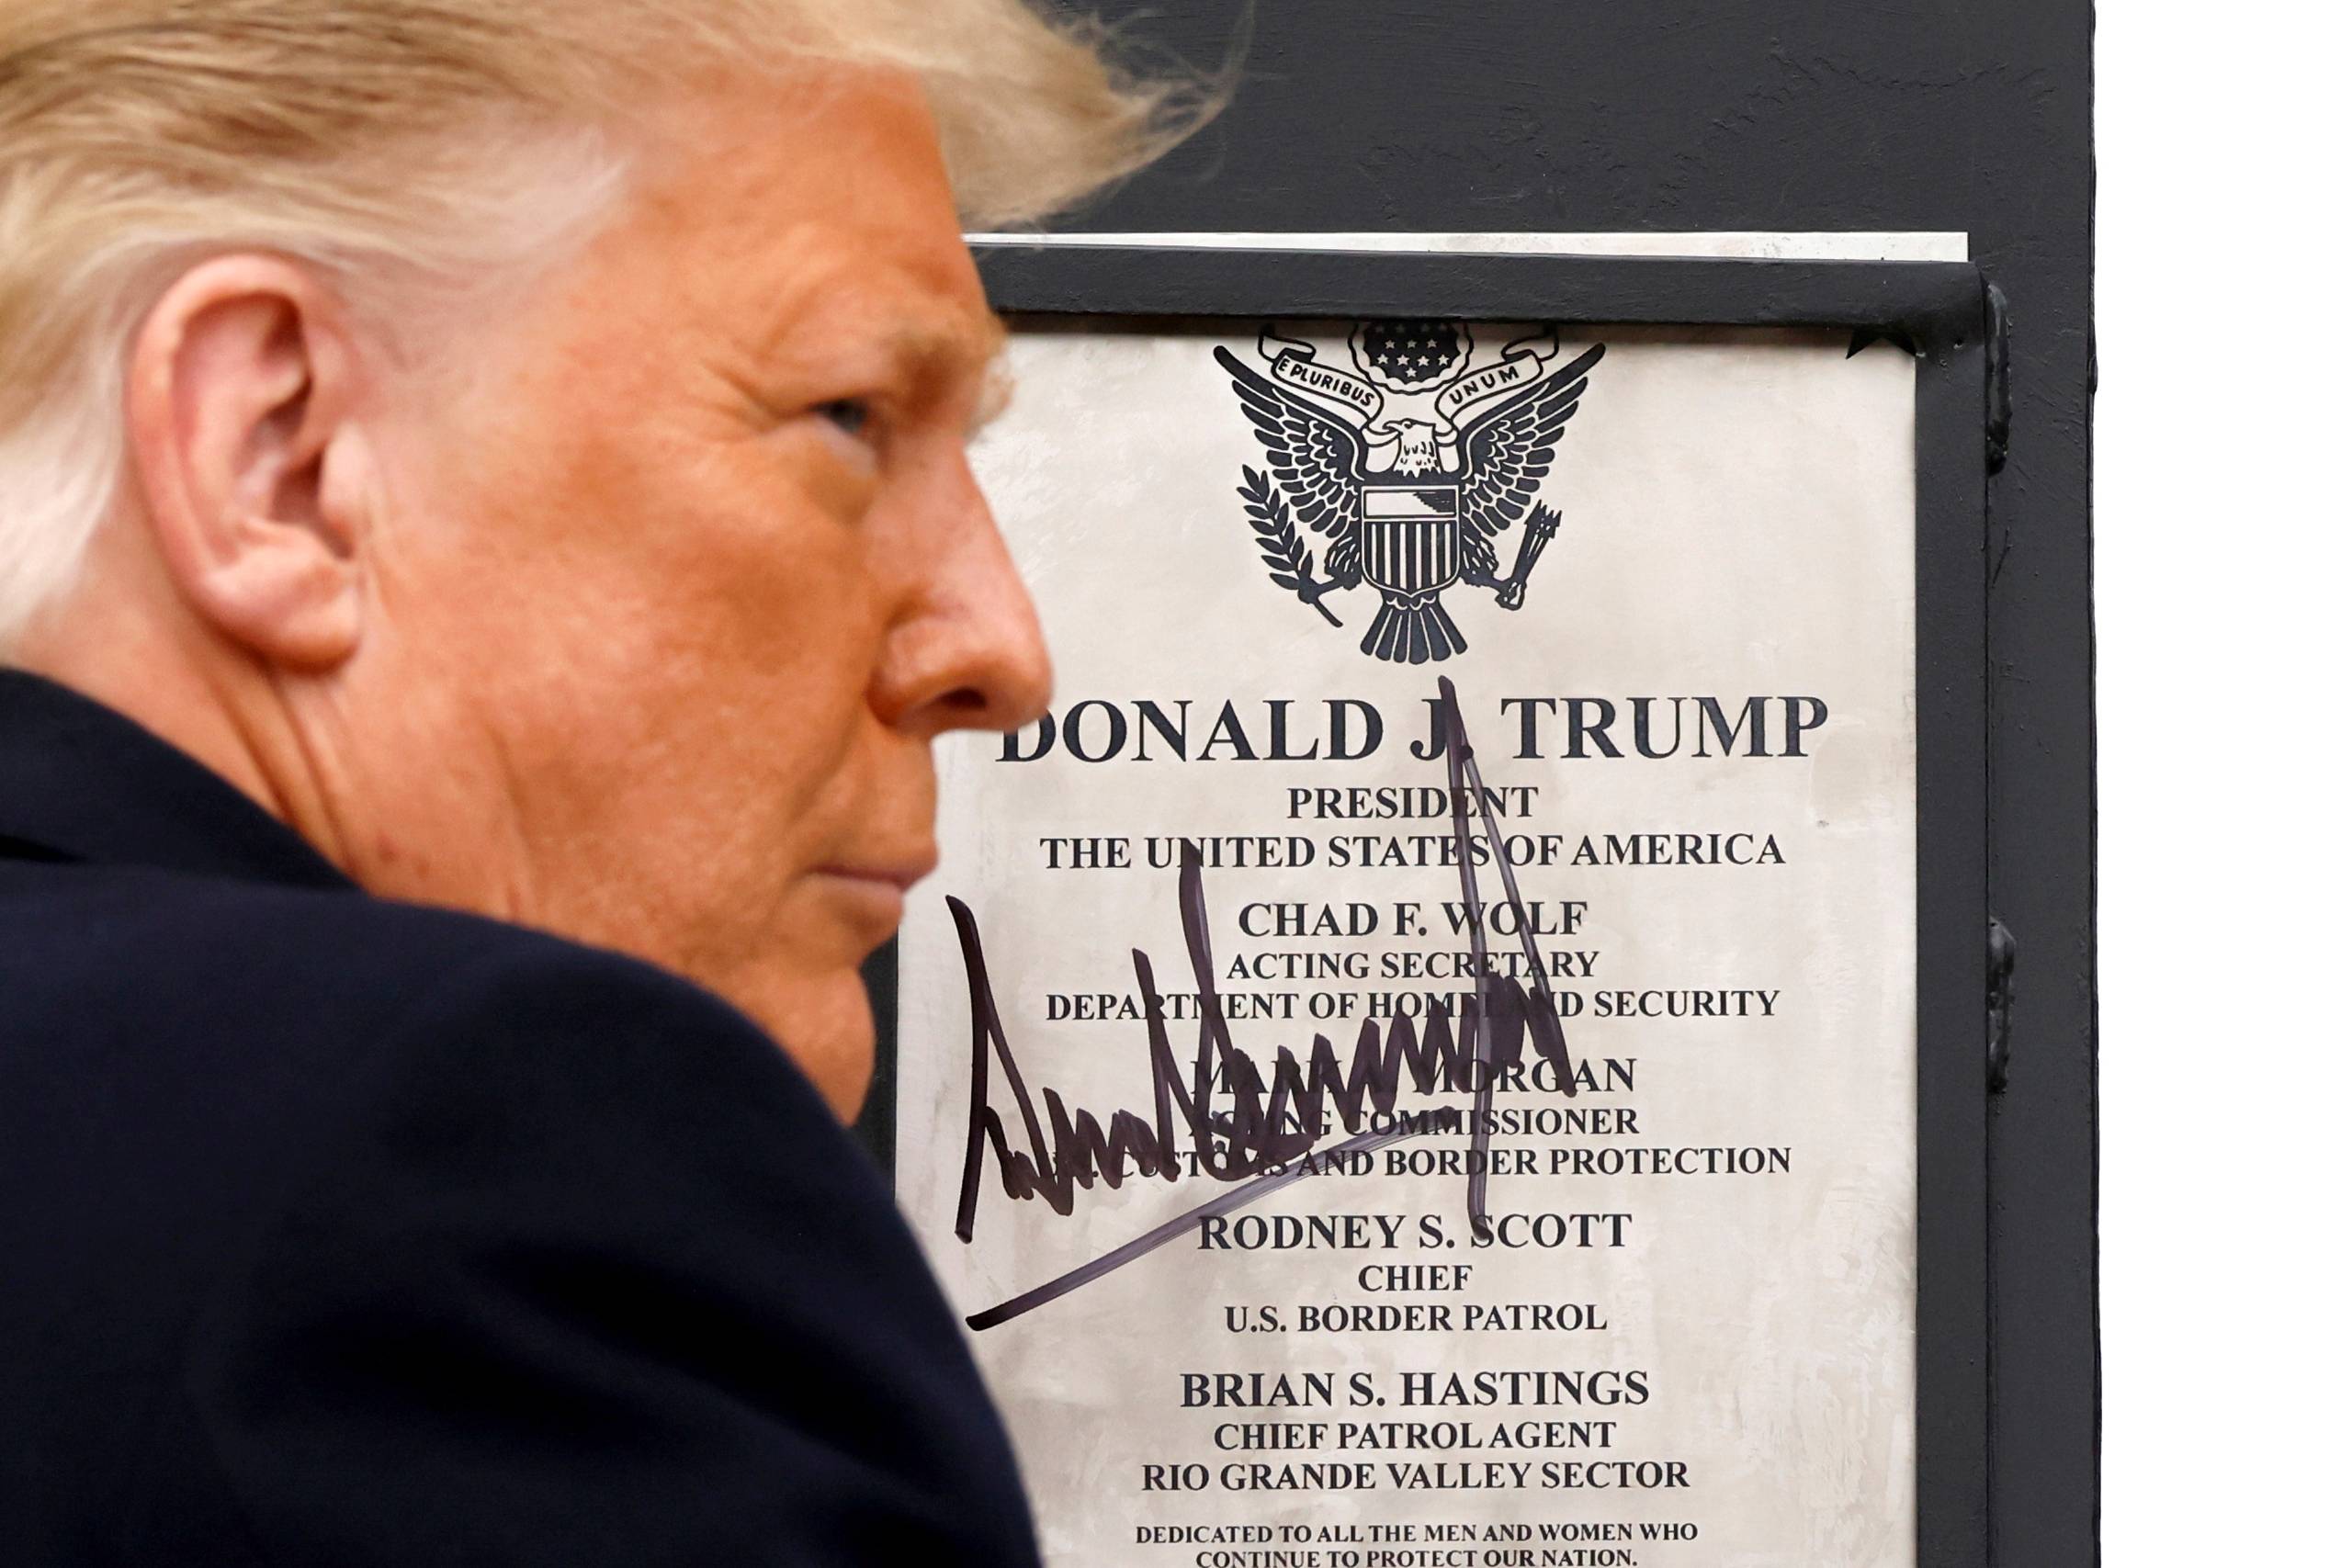 E PLURIBUS UNUM
DONALD J. TRUMP
PRESIDENT
THE UNITED STATES OF AMERICA
CHAD F. WOLF
ACTING SECRETARY
DEPARTMENT OF HOMELAND SECURITY
MARK MORGAN
ACTING COMMISSIONER
CUSTOMS AND BORDER PROTECTION
RODNEY S. SCOTT
CHIEF
U.S. BORDER PATROL
BRIAN S. HASTINGS
CHIEF PATROL AGENT
RIO GRANDE VALLEY SECTOR
DEDICATED TO ALL THE MEN AND WOMEN WHO
CONTINUE TO PROTECT OUR NATION.